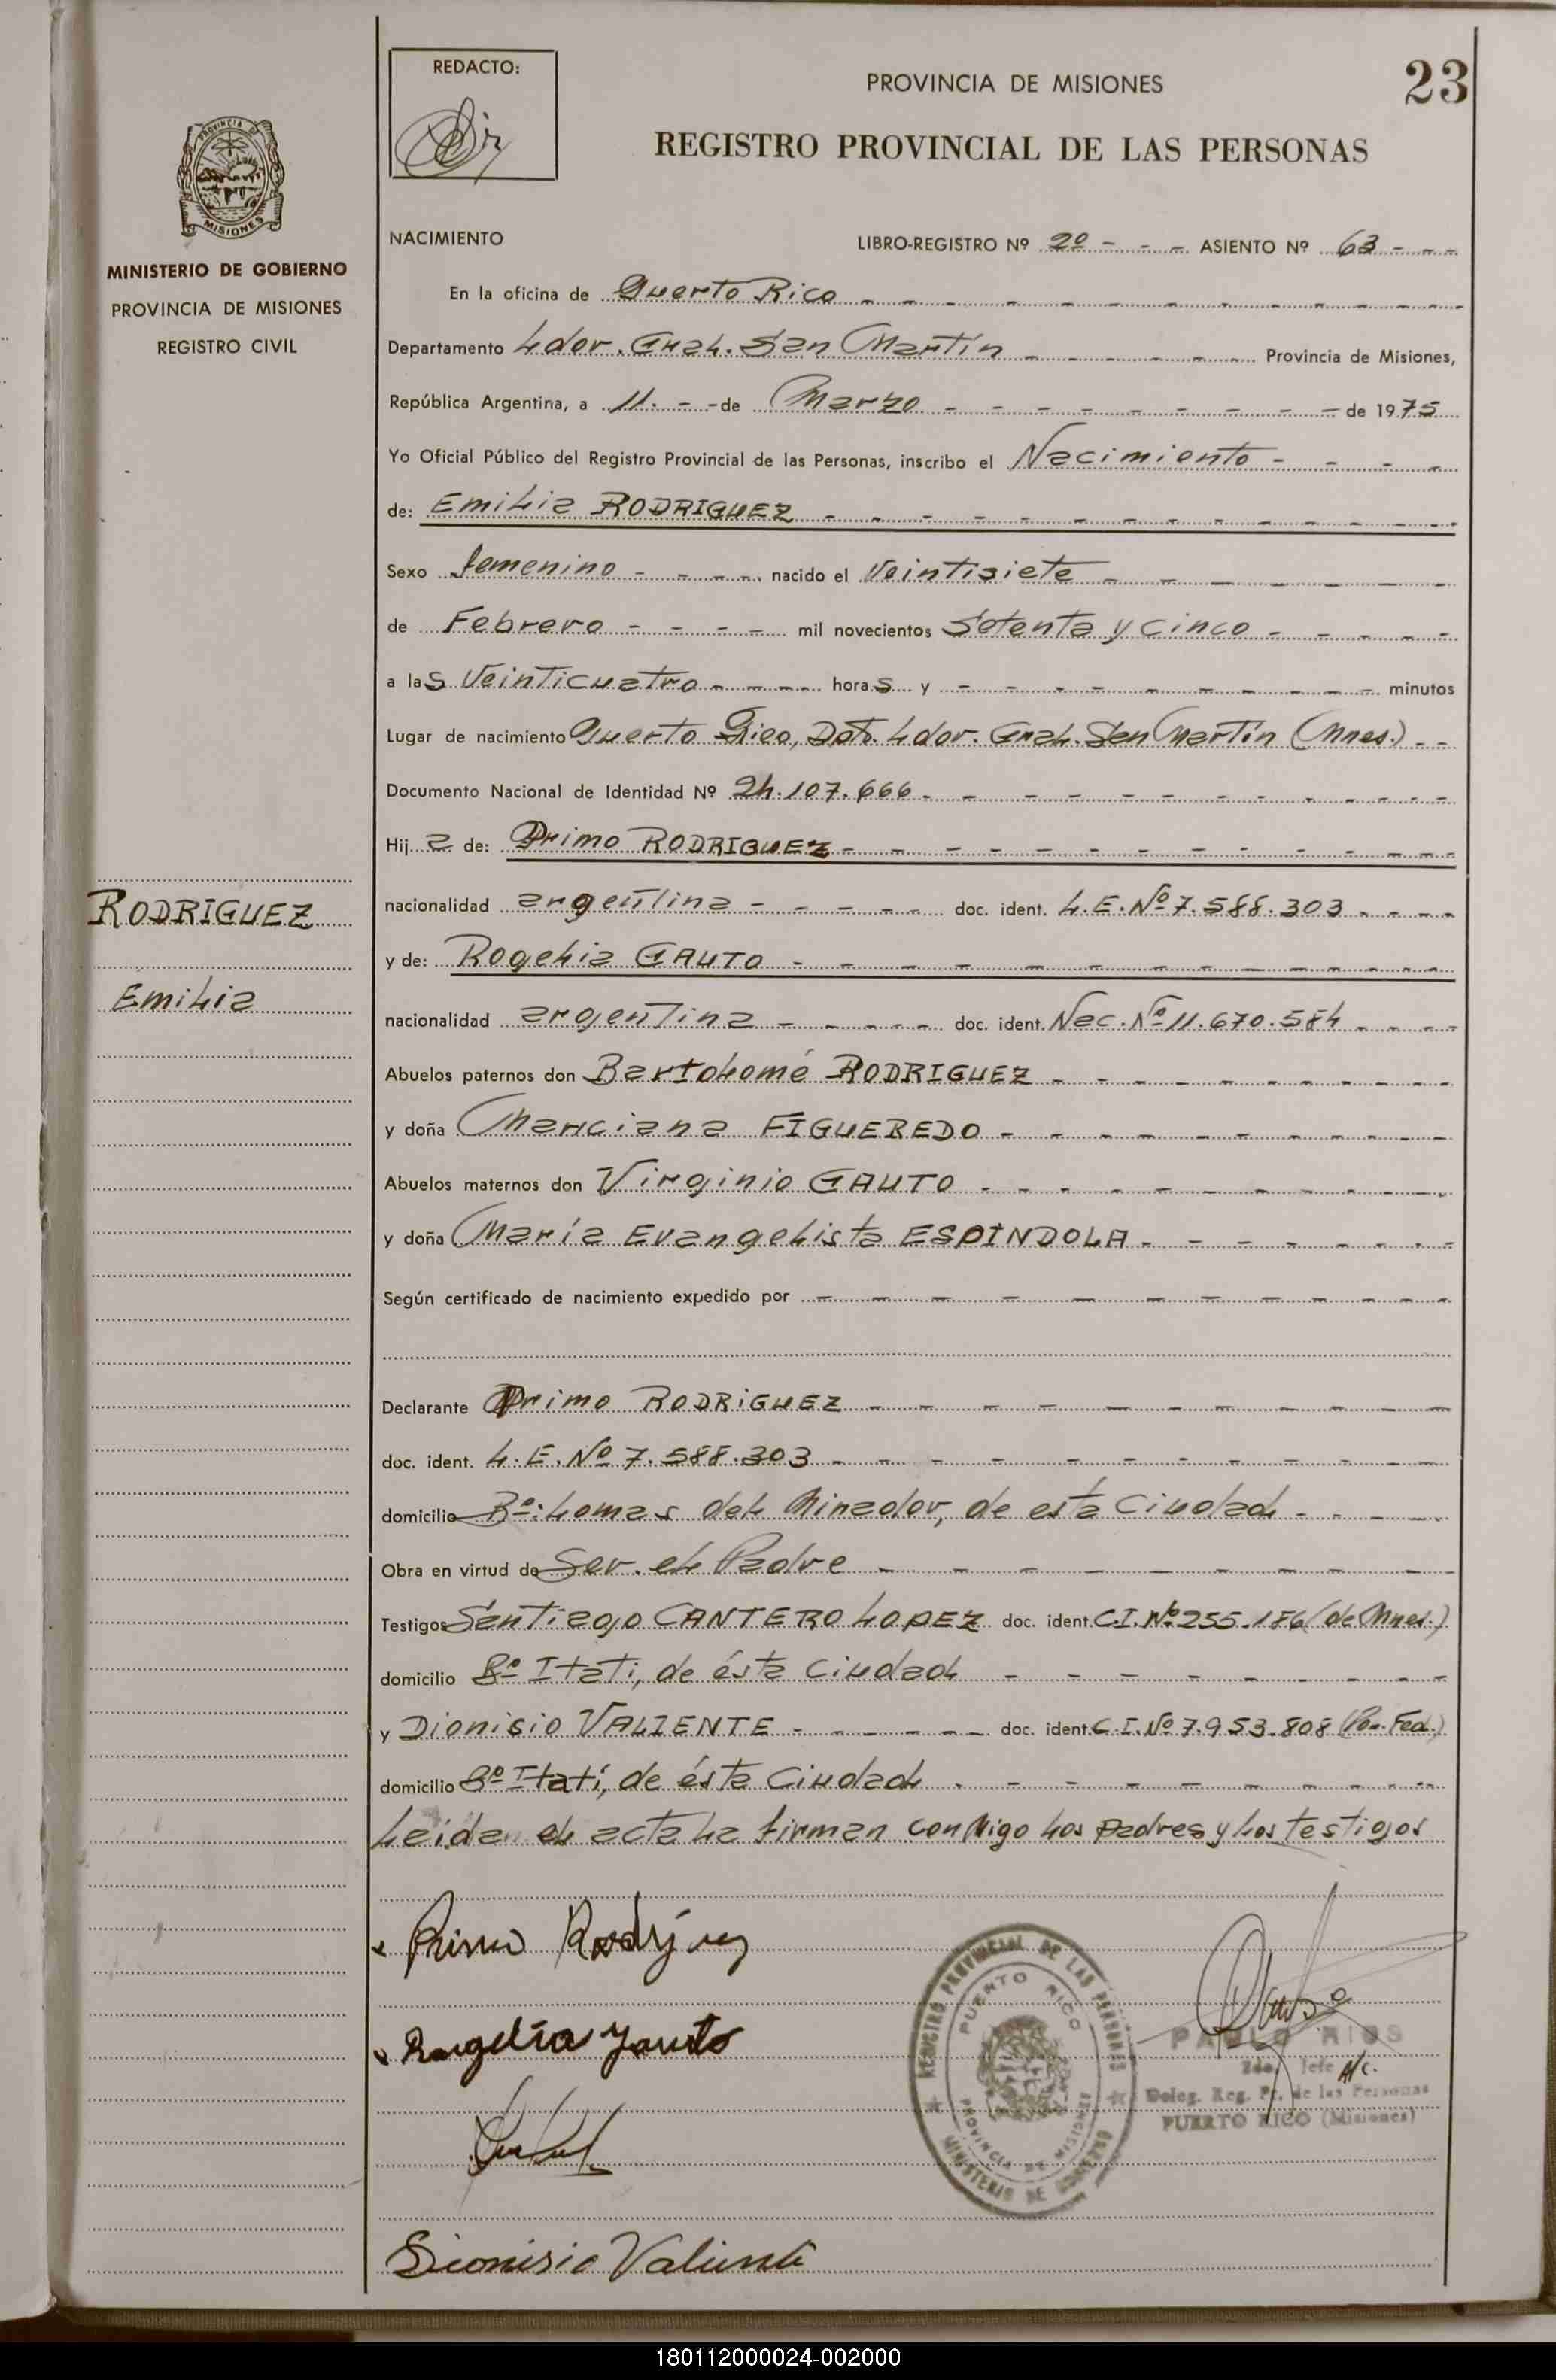 23
REDACTO:
PROVINCIA DE MISIONES
REGISTRO PROVINCIAL DE LAS PERSONAS
PROVINCIA DE MISIONES
MINISTERIO DE GOBIERNO
PROVINCIA DE MISIONES
REGISTRO CIVIL
NACIMIENTO LIBRO-REGISTRO Nº 2º - - - ASIENTO Nº 63 - - -
En la oficina de Puerto Rico
Departamento Ldor. Gral. San Martín Provincia de Misiones,
República Argentina, a 11. - - de Marzo de 1975
Yo Oficial Público del Registro Provincial de las Personas, inscribo el Nacimiento
de: Emilia RODRIGUEZ
Sexo femenino nacido el Veintisiete
de Febrero mil novecientos Setenta y cinco
a las Veinticuatro horas y - minutos
Lugar de nacimiento Puerto Rico, Dpto. Ldor. Gral. San Martín (Mnes.)
Documento Nacional de Identidad Nº 24.107.666
Hija de: Primo RODRIGUEZ
nacionalidad argentina doc. ident. L.E. Nº 7.588.303
RODRIGUEZ
y de: Rogelia GAUTO
Emilia
nacionalidad argentina doc. ident. Nac. Nº 11.670.584
Abuelos paternos don Bartolomé RODRIGUEZ
y doña Marciana FIGUEREDO
Abuelos maternos don Virginio GAUTO
y doña María Evangelista ESPINDOLA
Según certificado de nacimiento expedido por
Declarante Primo RODRIGUEZ
doc. ident. L.E. Nº 7.588.303
domicilio Bº: Lomas del Mirador, de esta Ciudad
Obra en virtud de Ser el Padre
Testigos Santiago CANTERO LOPEZ doc. ident. C.I. Nº 255.186 (de Mnes.)
domicilio Bº Itatí, de ésta Ciudad
y Dionisio VALIENTE doc. ident. C.I. Nº 7.953.808 (Po. Fed.)
domicilio Bº Itatí, de ésta Ciudad
Leída el acta la firman conmigo los padres y los testigos
Primo Rodríguez
Rogelia Gauto
REGISTRO PROVINCIAL DE LAS PERSONAS
PUERTO RICO
PROVINCIA DE MISIONES
MINISTERIO DE GOBIERNO
PABLO RIOS
2do. Jefe A/c.
Deleg. Reg. Pr. de las Personas
PUERTO RICO (Misiones)
Dionisio Valiente
180112000024-002000